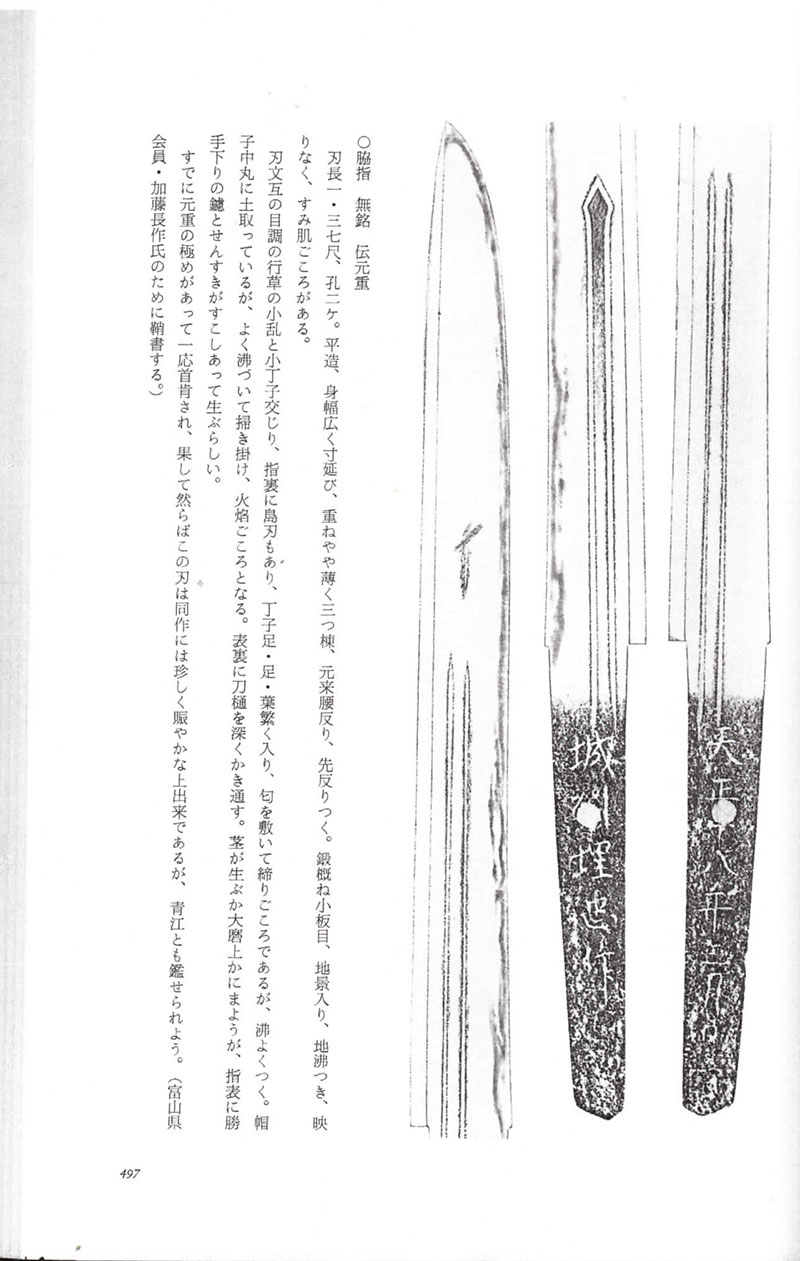 天正十八年二月日
城州埋忠作
〇脇指　無銘　伝元重
刃長一・三七尺、孔二ケ。平造、身幅広く寸延び、重ねやや薄く三つ棟、元来腰反り、先反りつく。鍛概ね小板目、地景入り、地沸つき、映
りなく、すみ肌ごころがある。
刃文互の目調の行草の小乱と小丁子交じり、指裏に島刃もあり、丁子足・足・葉繁く入り、匂を敷いて締りごころであるが、沸よくつく。帽
子中丸に土取っているが、よく沸づいて掃き掛け、火焰ごころとなる。表裏に刀樋を深くかき通す。茎が生ぶか大磨上かにまようが、指表に勝
手下りの鑢とせんすきがすこしあって生ぶらしい。
すでに元重の極めがあって一応首肯され、果して然らばこの刃は同作には珍しく賑やかな上出来であるが、青江とも鑑せられよう。（富山県
会員・加藤長作氏のために鞘書する。）
497